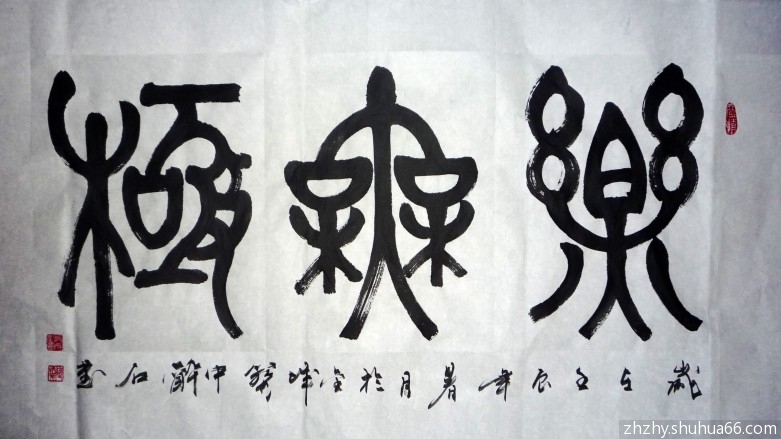 樂無極
歲在壬辰年暑月於金城中醉石書
zhzhy.shuhua66.com